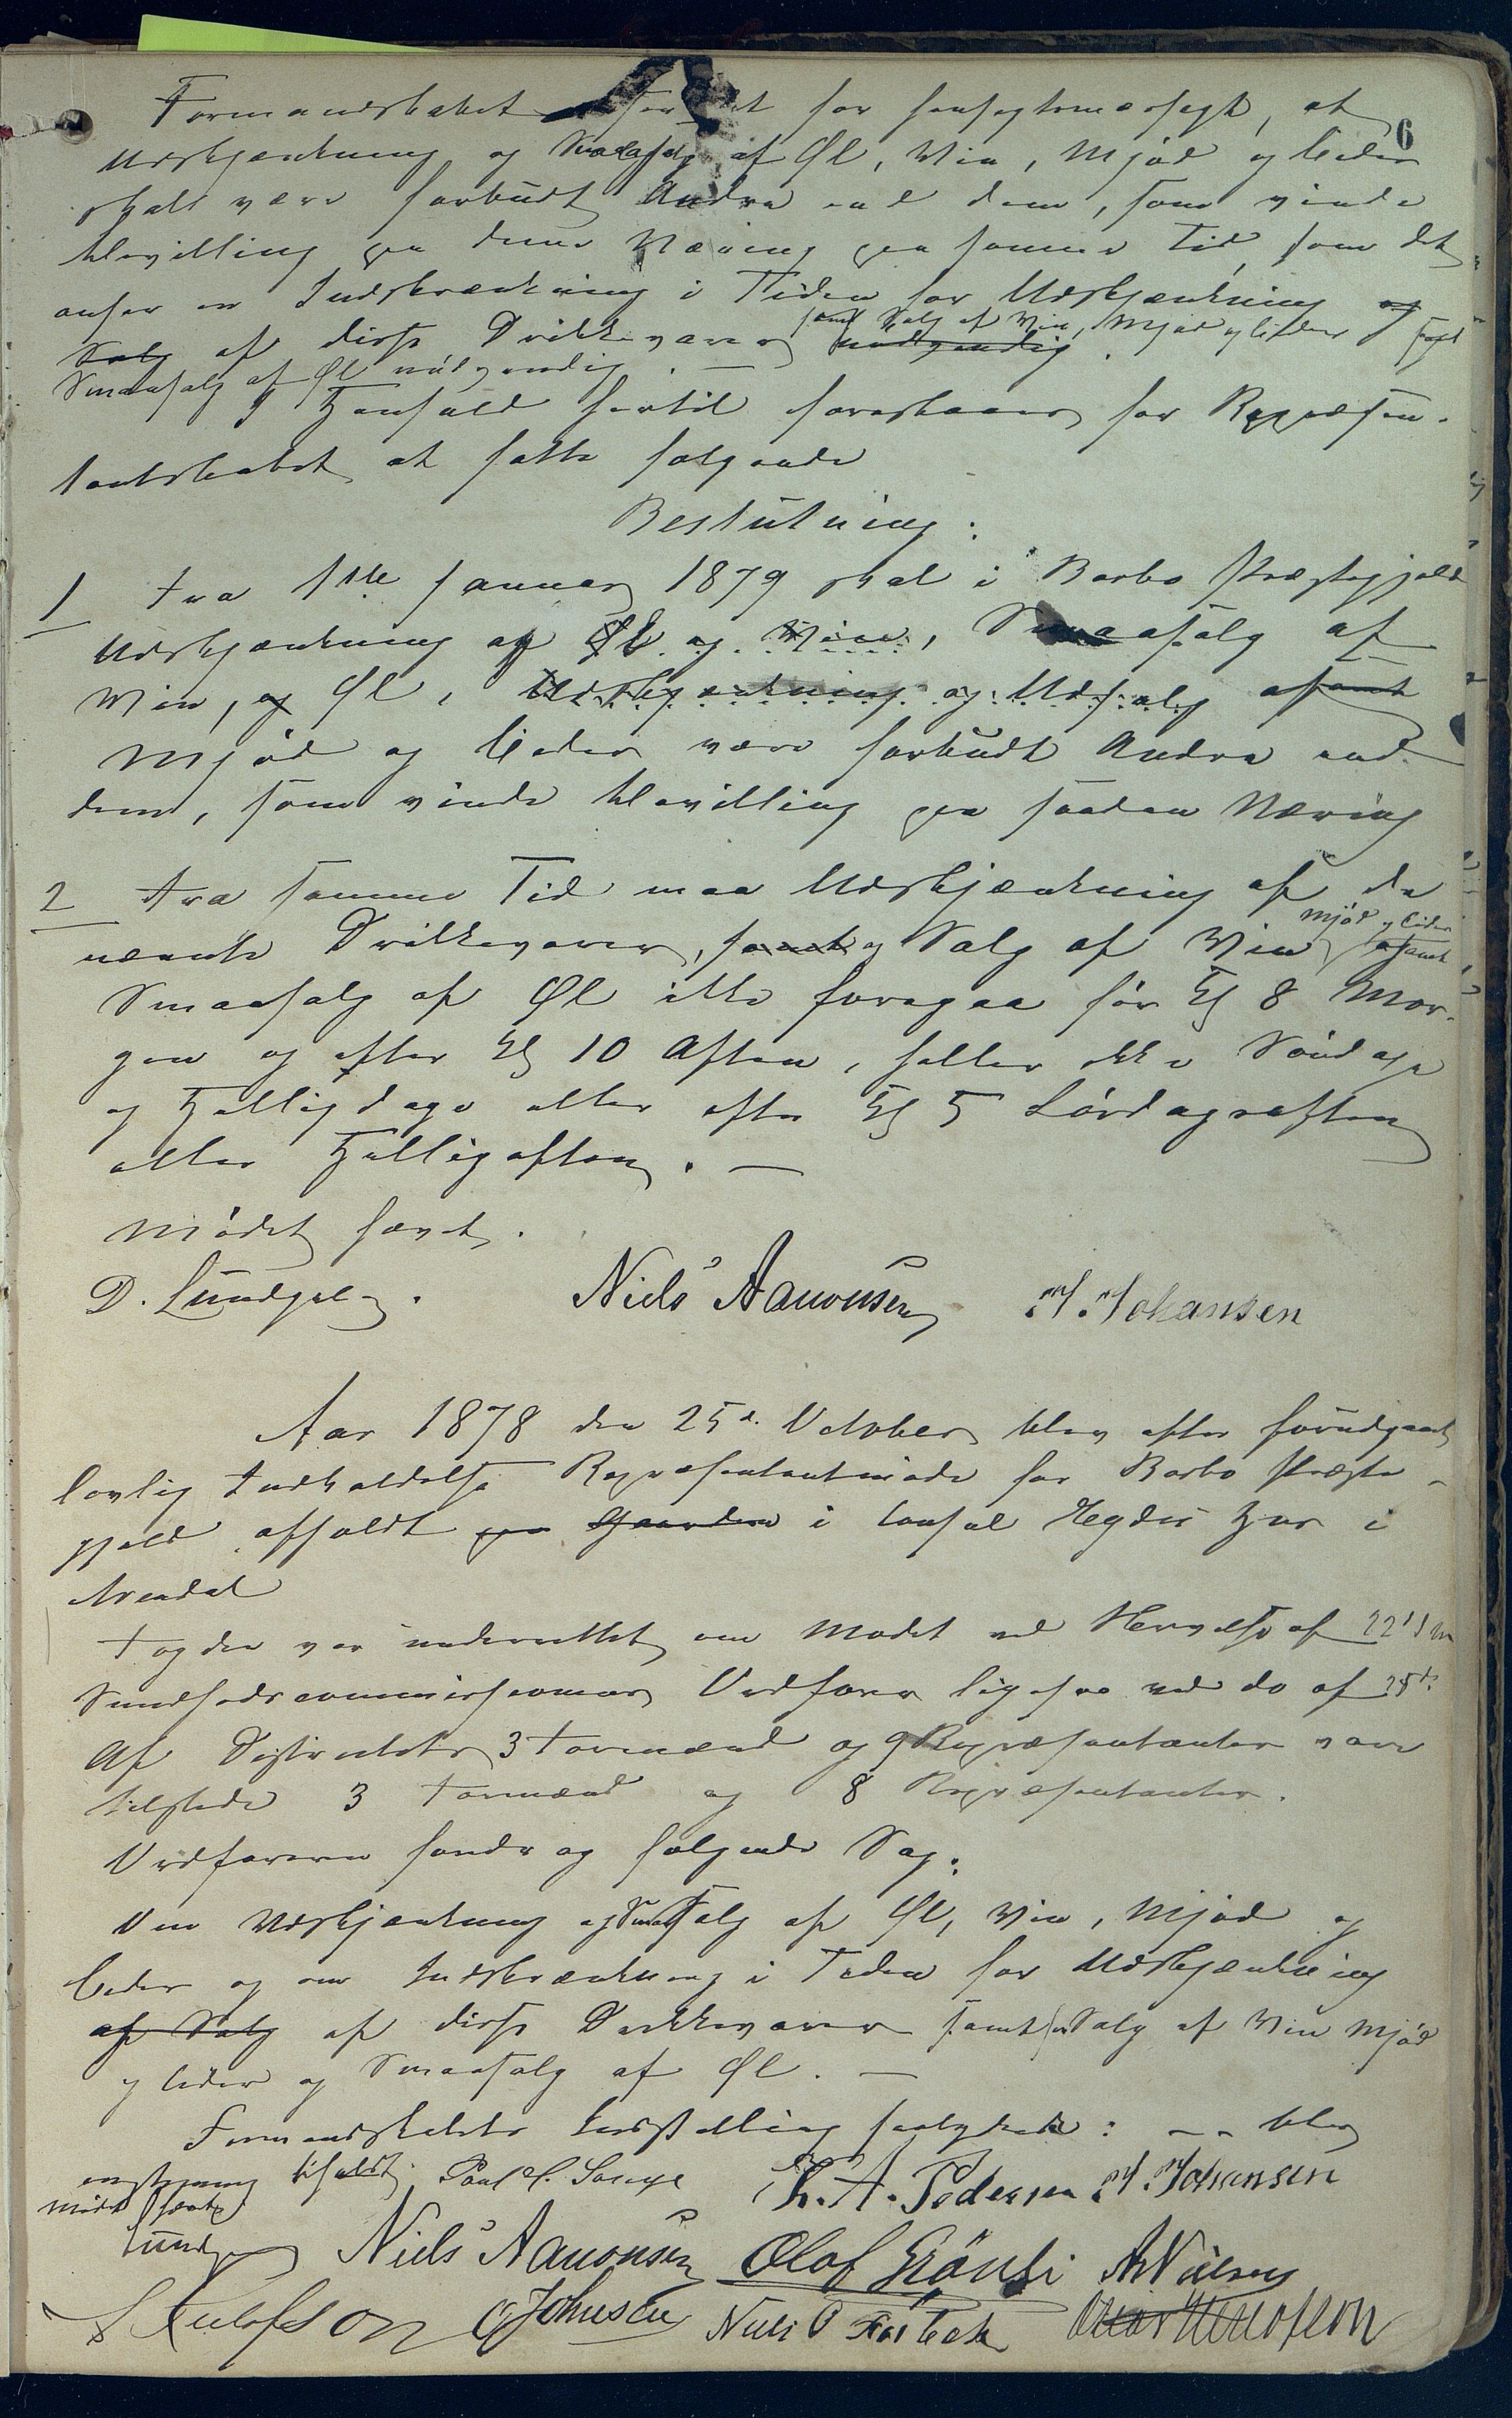 6
Formandskabet for hensigtsmæssigt, at
Udskjænkning og Smaasalg af Øl, Viin, Mjød og Cider
skall være forbudt Andre end dem, som vinde
bevilling paa denne Næring paa samme Tid, som det
anser en Indskrænkning i Tiden for Udskjænkning og
Salg af disse Drikkevarer samt Salg af Vin, Mjød og Cider nødvendig
Smaasalg af Øl nødvendig. —
I Henhold hertil foreslaaes for Repræsen-
tantskabet at fatte følgende
Beslutning:
1 Fra 1ste Januar 1879 skal i Barbo Præstegjeld
Udskjænkning af Øl og Viin, Smaasalg af
Viin, og Øl, Udskjænkning og Udsalg af samt
Mjød og Cider være forbudt Andre end
dem, som vinde bevilling paa saadan Næring
2 Fra samme Tid maa Udskjænkning af de
nævnte Drikkevarer, samt og Salg af Viin Mjød og Cider samt
Smaasalg af Øl ikke foregaa før Kl 8 Mor-
gen og efter Kl 10 Aften, heller ikke Søndage
og Helligdage eller efter Kl 5 Lørdagsaften
eller Helligaften. —
Mødet hævet.
D. Lundgel. Niels Aanonsen J. Johansen
Aar 1878 den 25d. October blev efter forudgaaet
lovlig Indkaldelse Repræsentantmøde for Barbo Præste-
gjeld afholdt paa Gaarden i Consul Kegdes Hus i
Arendal
Fogden var underrettet om Mødet ved Skrivelse af 22'
Sundhedscommissionens Ordfører ligesaa ved do af 25de
Af Distriktets 3 Formænd og 9 Repræsentanter vare
tilstede 3 Formænd og 8 Repræsentanter.
Ordføreren foredrog følgende Sag:
Om Udskjænkning og Smaasalg af Øl, Viin, Mjød og
Cider og om Indskrænkning i Tiden for Udskjænkning
af Salg af disse Drikkevarer samt Salg af Viin Mjød
og Cider og Smaasalg af Øl. —
Formandskabets Indstilling saalydende: — — blev
enstemmig bifaldt. Paul C. K. A. Pedersen J. Johansen
Mødet hævet
Lundg Niels Aanonsen Olof A Nielsen
Johnsen Niels O